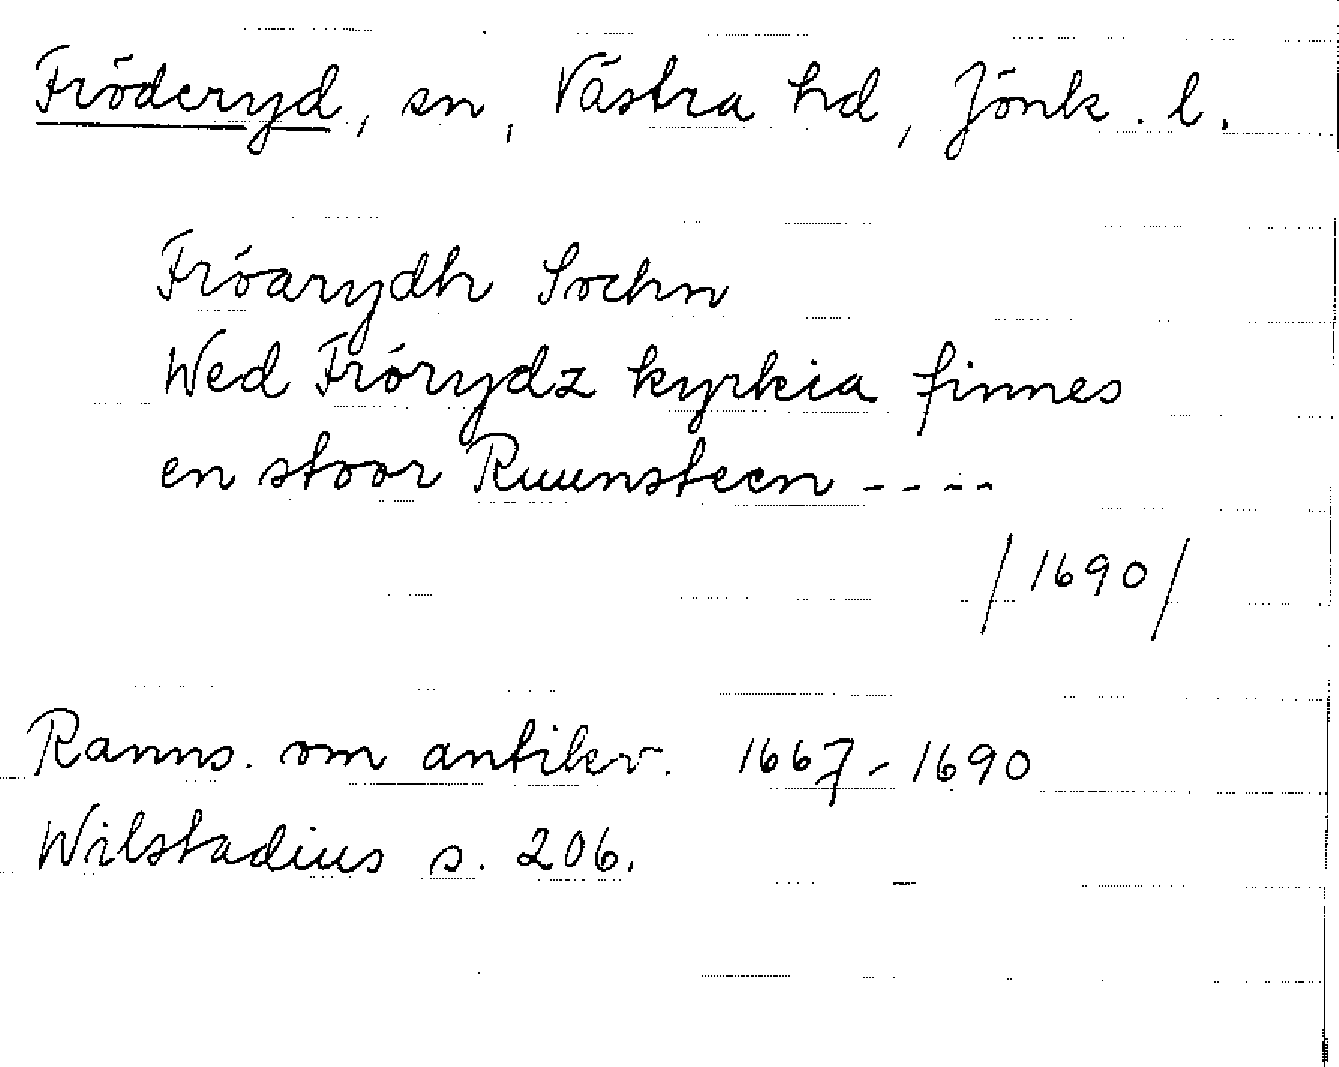 Fröderyd, sn, Västra hd, Jönk. l.
Fröarydh Sochn
Wed Frörydz kyrkia finnes
en stoor Ruunsteen ----
/1690/
Ranns. om antikv. 1667-1690
Wilstadius s. 206.